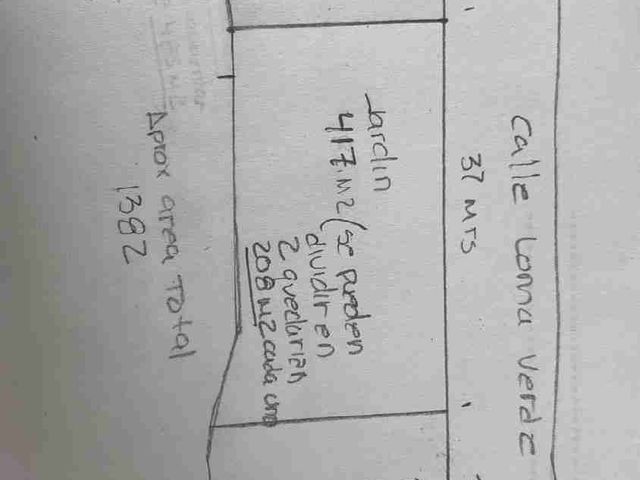 Calle Loma Verde
37 Mts
Jardin
417.M2 (se pueden
dividir en
2 quedarian
208 M2 cada uno
Aprox area Total
1382